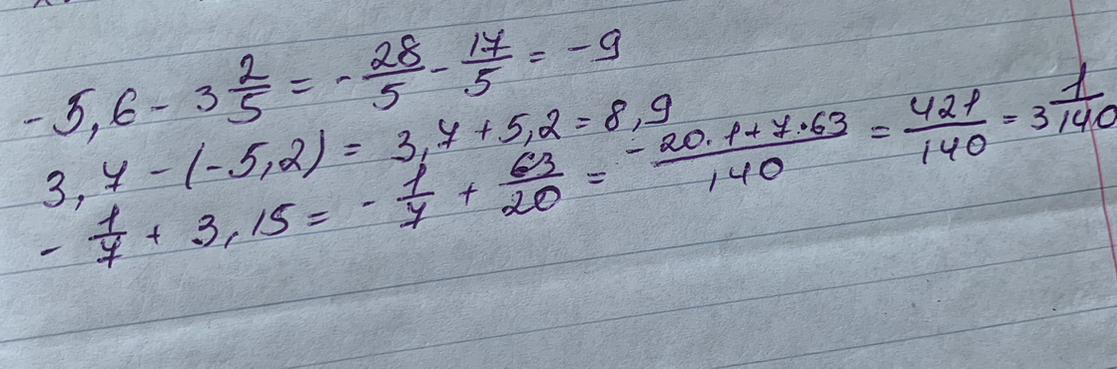 -5,6 - 3 2/5 = - 28/5 - 17/5 = -9
3,7 - (-5,2) = 3,7 + 5,2 = 8,9
- 1/7 + 3,15 = - 1/7 + 63/20 = (-20·1+7·63)/140 = 421/140 = 3 1/140